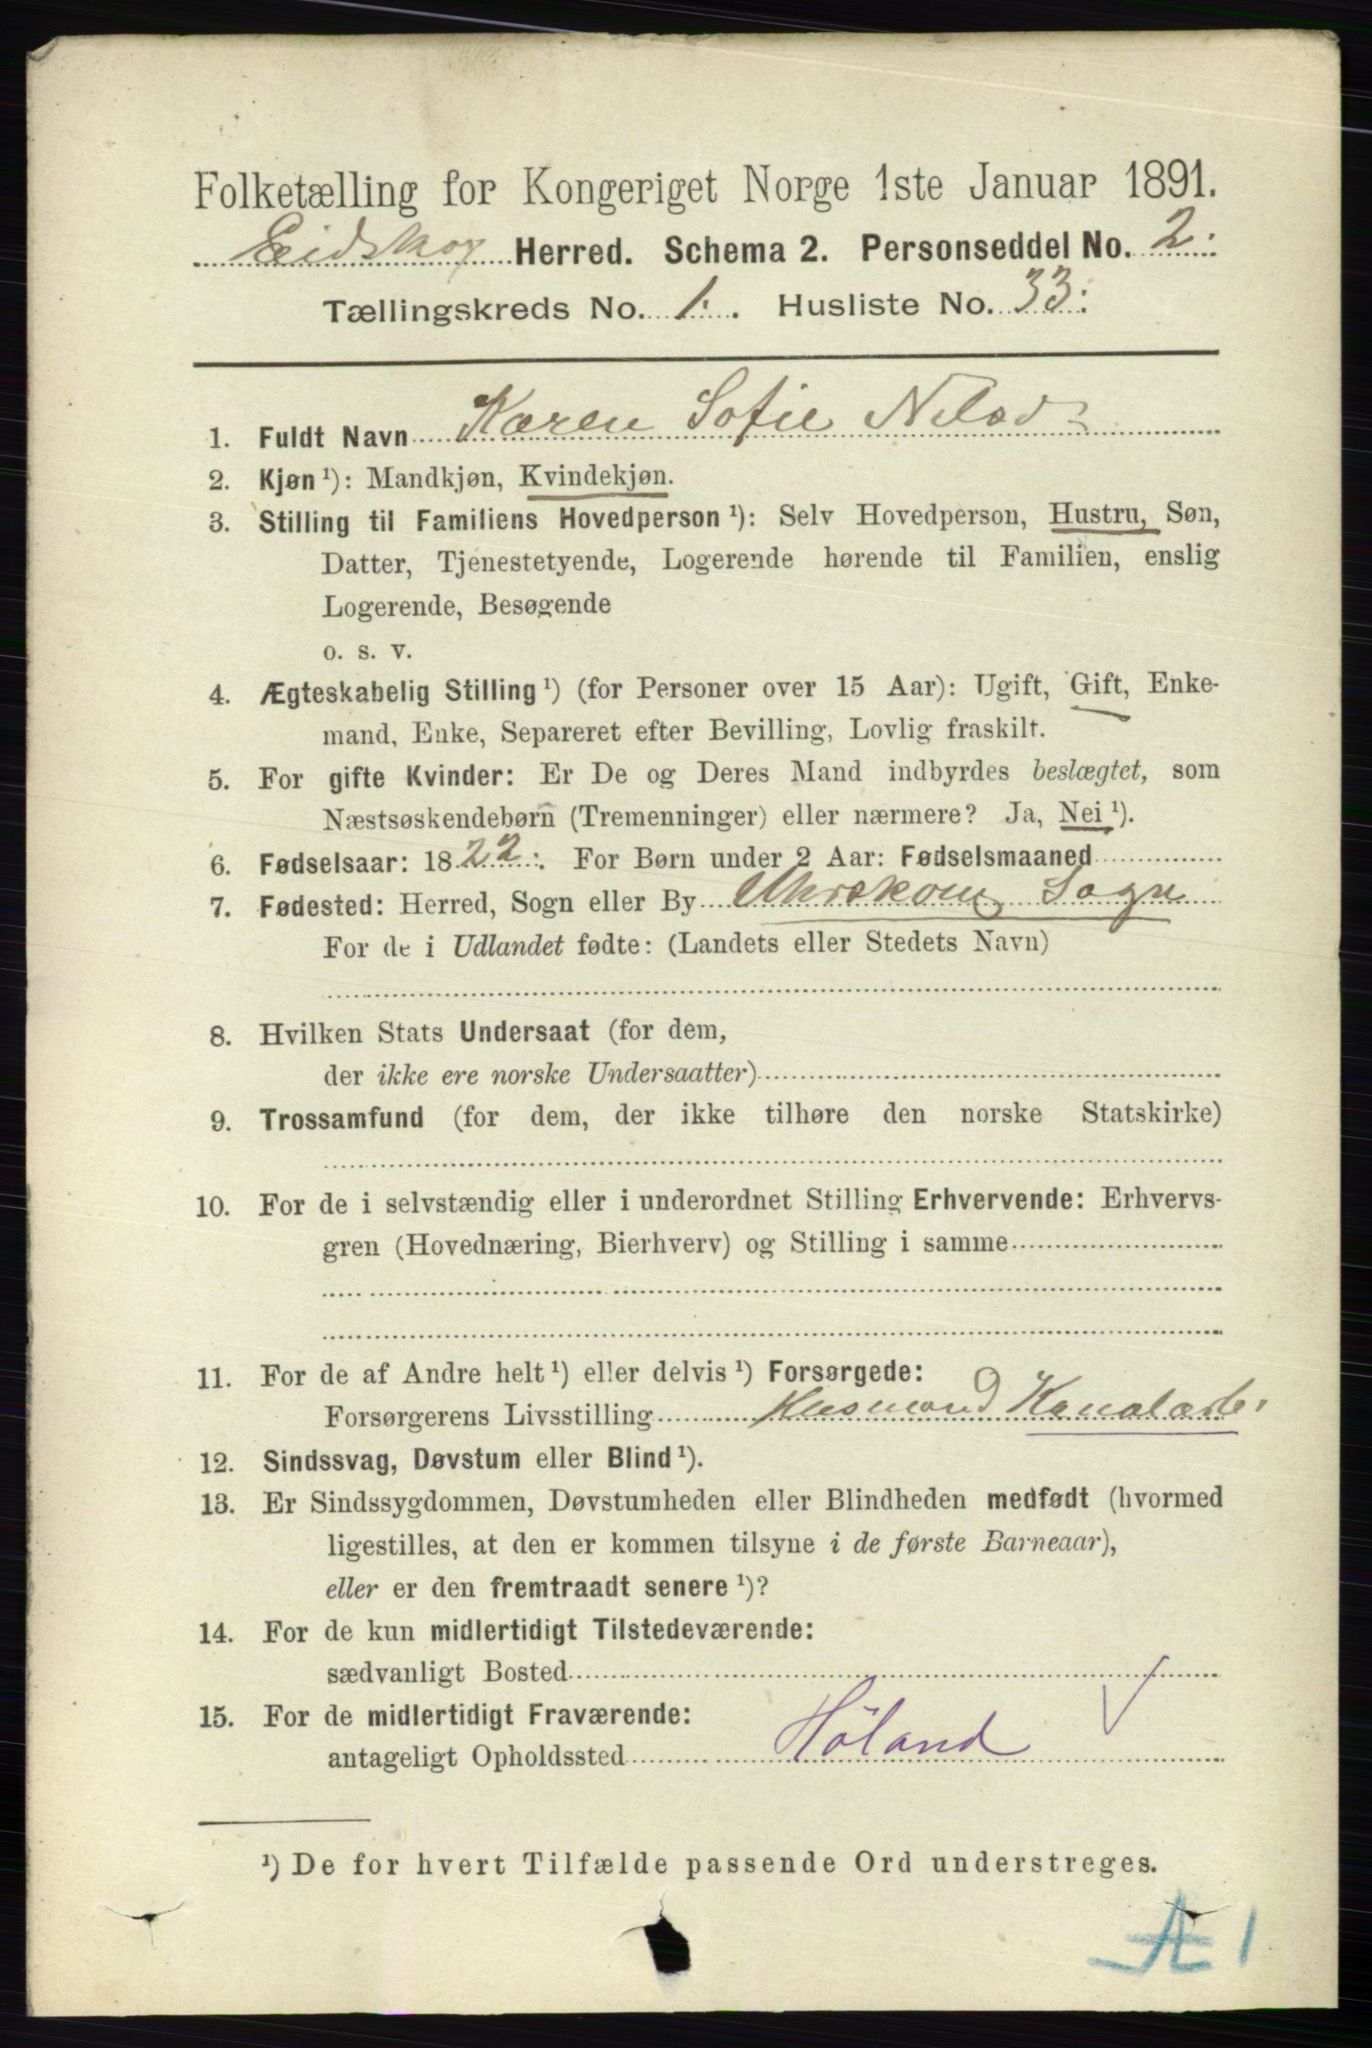 Folketælling for Kongeriget Norge 1ste Januar 1891.
Eidskog Herred. Schema 2. Personseddel No. 2.
Tællingskreds No. 1. Husliste No. 33.
1. Fuldt Navn Karen Sofie Nilsd
2. Kjøn ¹): Mandkjøn, Kvindekjøn.
3. Stilling til Familiens Hovedperson ¹): Selv Hovedperson, Hustru, Søn,
Datter, Tjenestetyende, Logerende hørende til Familien, enslig
Logerende, Besøgende
o. s. v.
4. Ægteskabelig Stilling ¹) (for Personer over 15 Aar): Ugift, Gift, Enke-
mand, Enke, Separeret efter Bevilling, Lovlig fraskilt.
5. For gifte Kvinder: Er De og Deres Mand indbyrdes beslægtet, som
Næstsøskendebørn (Tremenninger) eller nærmere? Ja, Nei ¹).
6. Fødselsaar: 1822. For Børn under 2 Aar: Fødselsmaaned
7. Fødested: Herred, Sogn eller By Uhrskoug Sogn
For de i Udlandet fødte: (Landets eller Stedets Navn)
8. Hvilken Stats Undersaat (for dem,
der ikke ere norske Undersaatter)
9. Trossamfund (for dem, der ikke tilhøre den norske Statskirke)
10. For de i selvstændig eller i underordnet Stilling Erhvervende: Erhvervs-
gren (Hovednæring, Bierhverv) og Stilling i samme
11. For de af Andre helt ¹) eller delvis ¹) Forsørgede:
Forsørgerens Livsstilling Husmand Kanalarb.
12. Sindssvag, Døvstum eller Blind ¹).
13. Er Sindssygdommen, Døvstumheden eller Blindheden medfødt (hvormed
ligestilles, at den er kommen tilsyne i de første Barneaar),
eller er den fremtraadt senere ¹)?
14. For de kun midlertidigt Tilstedeværende:
sædvanligt Bosted
15. For de midlertidigt Fraværende:
antageligt Opholdssted Höland
¹) De for hvert Tilfælde passende Ord understreges.
Æ 1